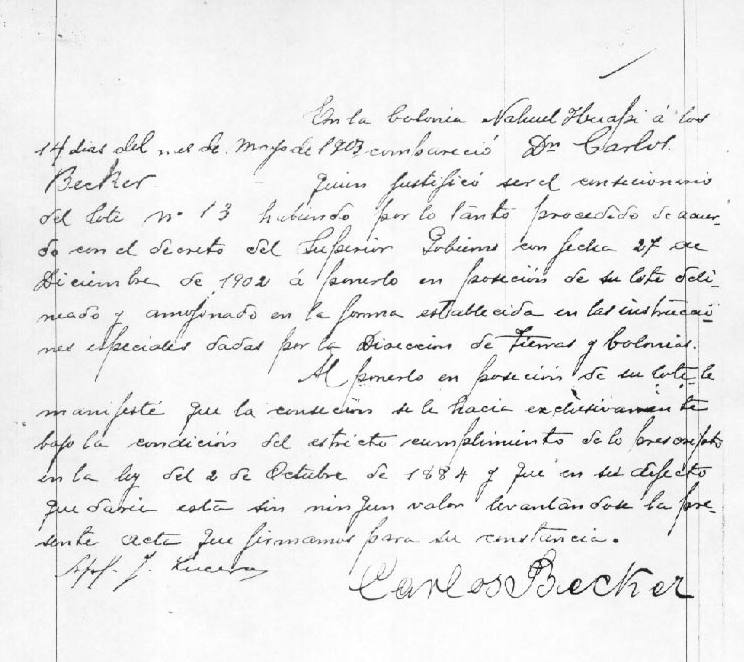 En la Colonia Nahuel Huapi á los
14 dias del mes de Mayo de 1903 compareció Dn Carlos
Becker quien justificó ser el consecionario
del lote no 13 habiendo por lo tanto procedido de acuer-
do con el decreto del Superior Gobierno con fecha 27 de
Diciembre de 1902 á ponerlo en poseción de su lote deli-
neado y amojonado en la forma establecida en las instruccio-
nes especiales dadas por la Dirección de Tierras y Colonias.
Al ponerlo en poseción de su lote le
manifesté que la conseción se le hacia exclusivamente
bajo la condición del estricto cumplimiento de lo prescripto
en la ley del 2 de Octubre de 1884 y que en su defecto
quedaria esta sin ningun valor levantándose la pre-
sente acta que firmamos para su constancia.
J. Lucero
Carlos Becker